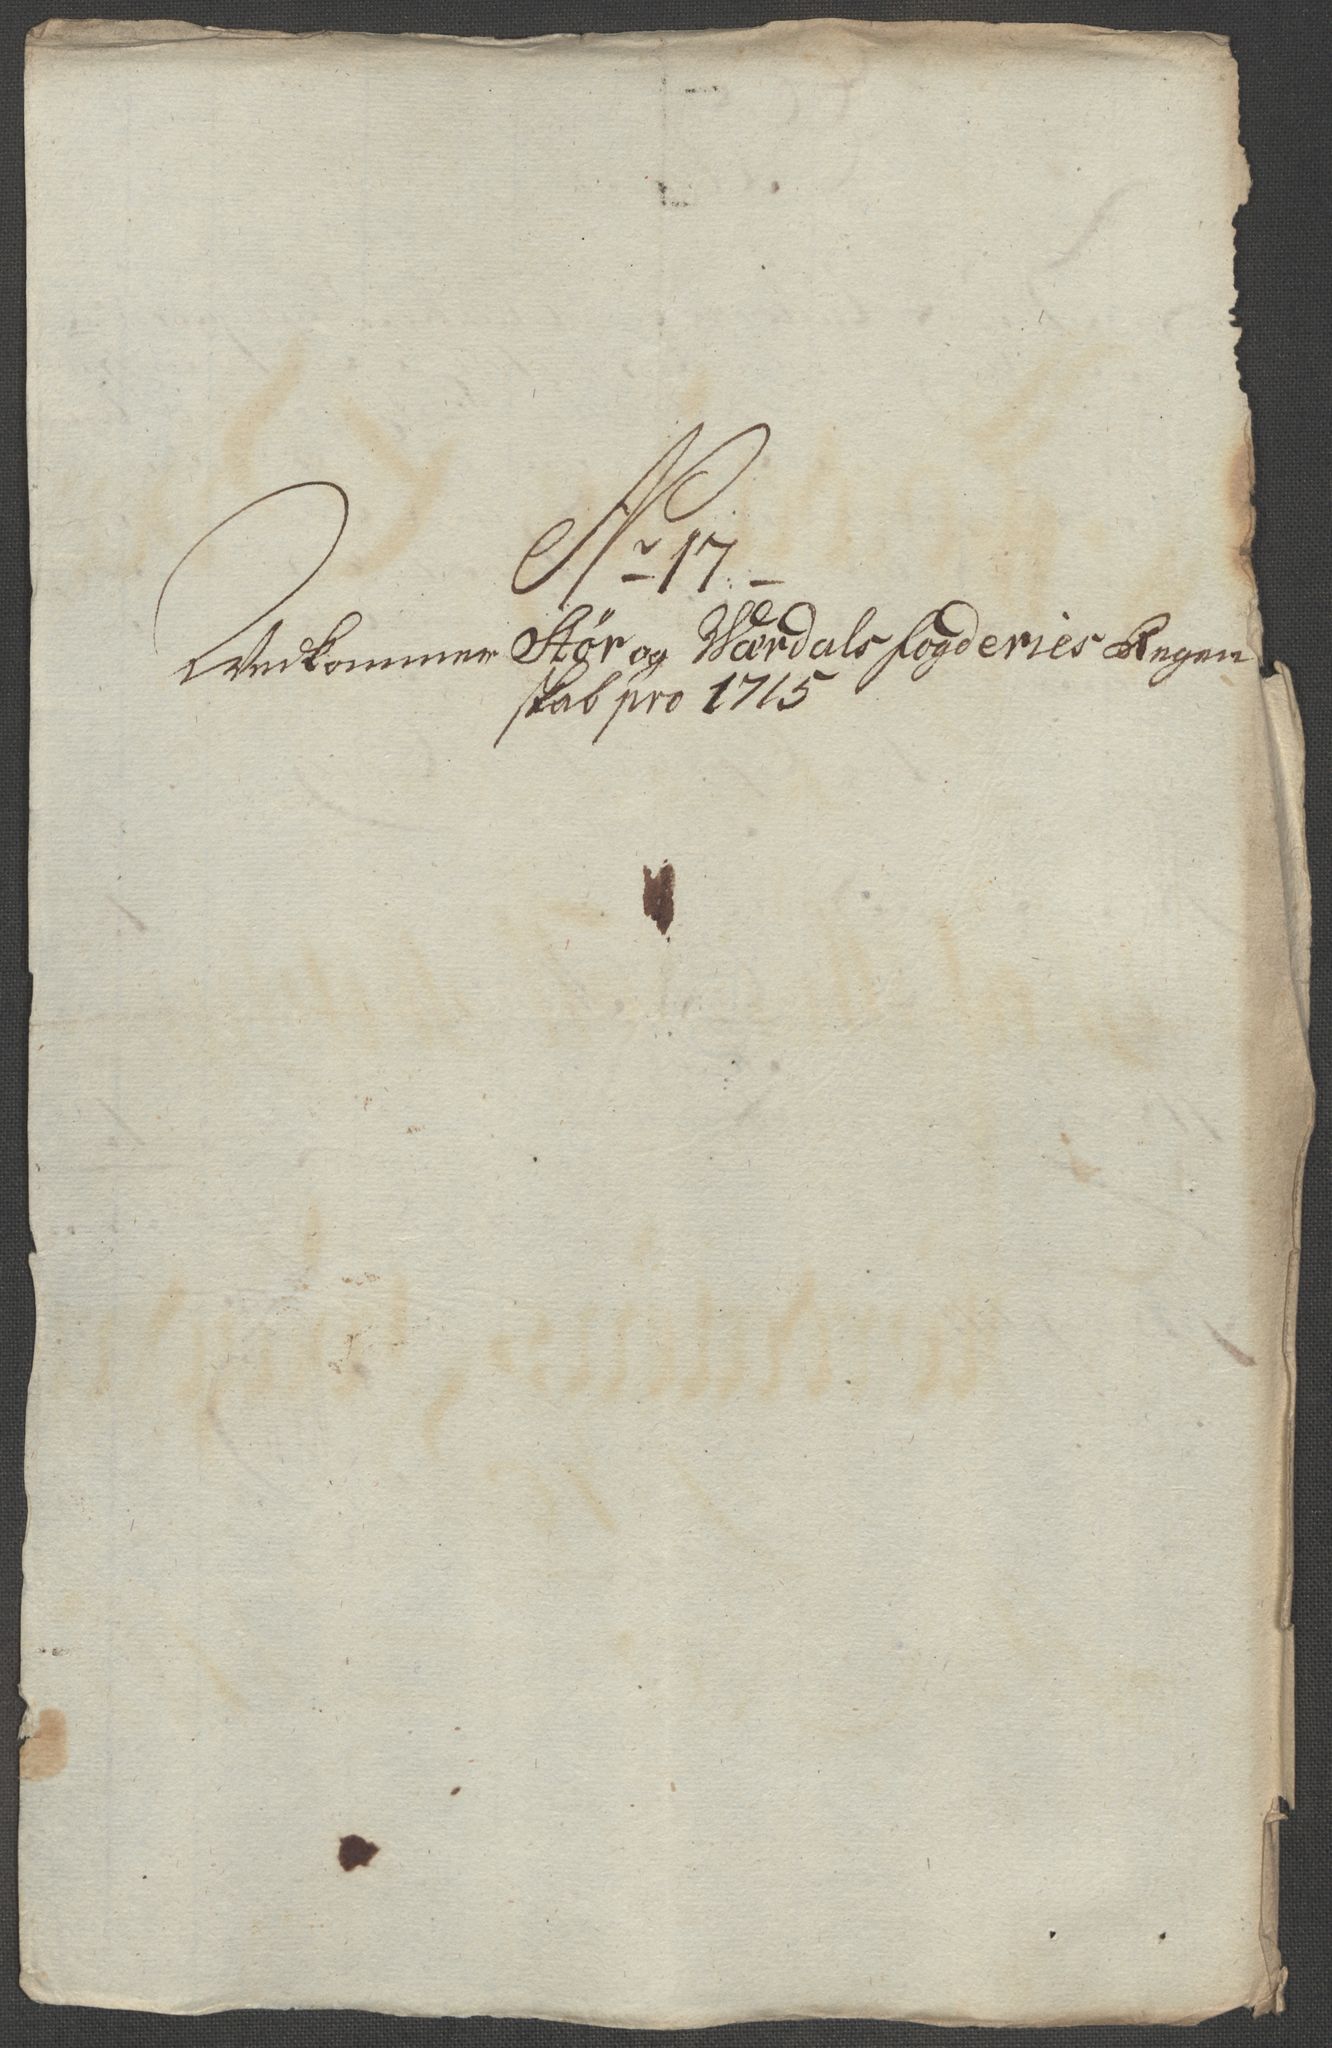 No 17
Vedkommer Stør og Værdals fogderies Regen
skab pro 1715